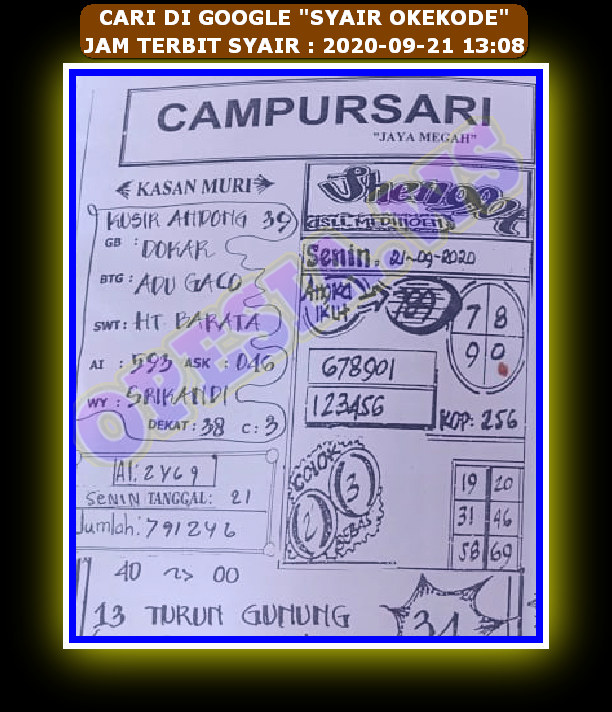 CARI DI GOOGLE "SYAIR OKEKODE"
JAM TERBIT SYAIR : 2020-09-21 13:08
CAMPURSARI
"JAYA MEGAH"
KASAN MURI
KUSIR ANDONG 39
GB : DOKAR
BTG : ADU GACO
SWT : HT BARATA
AI : 593 ASK : 046
WY : SRIKANDI
DEKAT : 38 C : 3
AI: 2469
SENIN TANGGAL: 21
Jumlah: 791246
40 ~> 00
13 TURUN GUNUNG
Senin. 21-09-2020
Angka
IKUT
7 8
9 0
678901
123456
KOP: 256
COLOK
2 3
BEBAS
19 20
31 46
58 69
34